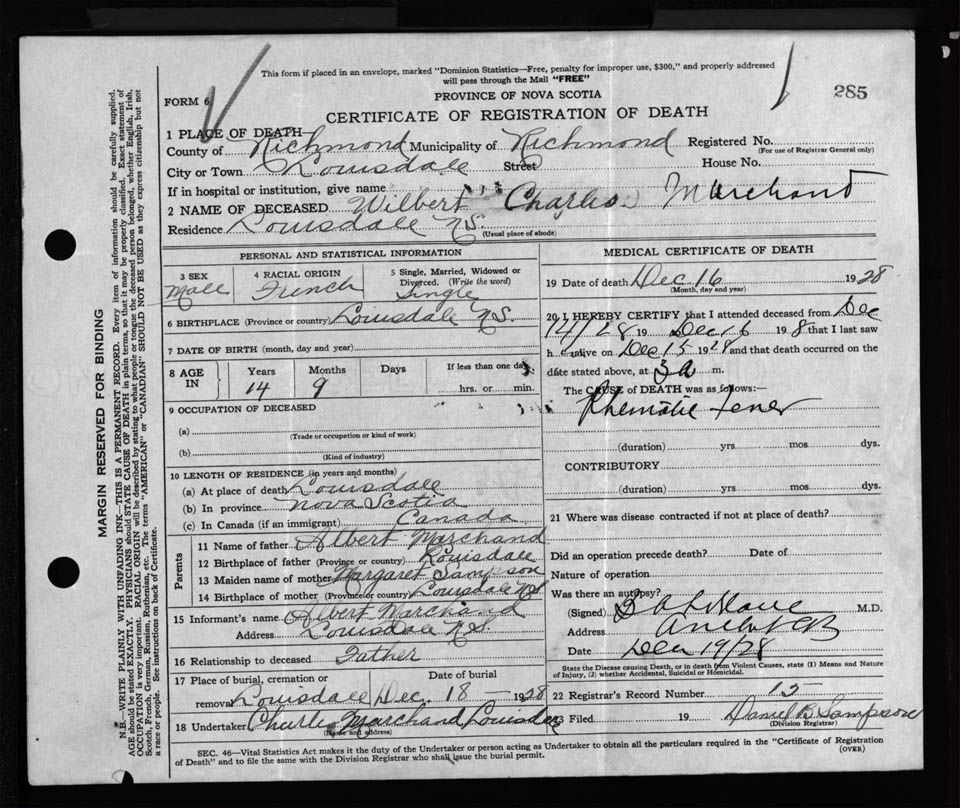 This form if placed in an envelope, marked "Dominion Statistics—Free, penalty for improper use, $300," and properly addressed
will pass through the Mail "FREE"
285
FORM 6
PROVINCE OF NOVA SCOTIA
CERTIFICATE OF REGISTRATION OF DEATH
1 PLACE OF DEATH—
County of Richmond Municipality of Richmond Registered No.
(For use of Registrar General only)
City or Town Louisdale Street House No.
If in hospital or institution, give name
2 NAME OF DECEASED Wilbert Charles Marchand
Residence Louisdale N.S.
(Usual place of abode)
PERSONAL AND STATISTICAL INFORMATION
3 SEX Male
4 RACIAL ORIGIN French
5 Single, Married, Widowed or
Divorced. (Write the word)
Single
6 BIRTHPLACE (Province or country) Louisdale N.S.
7 DATE OF BIRTH (month, day and year)
8 AGE IN
Years Months Days If less than one day
14 9 hrs. or min.
9 OCCUPATION OF DECEASED
(a)
(Trade or occupation or kind of work)
(b)
(Kind of industry)
10 LENGTH OF RESIDENCE (in years and months)
(a) At place of death Louisdale
(b) In province Nova Scotia
(c) In Canada (if an immigrant) Canada
Parents
11 Name of father Albert Marchand
12 Birthplace of father (Province or country) Louisdale
13 Maiden name of mother Margaret Sampson
14 Birthplace of mother (Province or country) Louisdale N.S.
15 Informant's name Albert Marchand
Address Louisdale N.S.
16 Relationship to deceased Father
17 Place of burial, cremation or Date of burial
removal Louisdale Dec. 18 — 1928
18 Undertaker Charles Marchand Louisdale
(Name and address)
MEDICAL CERTIFICATE OF DEATH
19 Date of death Dec 16 1928
(Month, day and year)
20 I HEREBY CERTIFY that I attended deceased from Dec
14/28 19 Dec 16 19 8 that I last saw
h alive on Dec 15 1928 and that death occurred on the
date stated above, at 3 a m.
The CAUSE of DEATH was as follows:—
Rhematic fever
(duration) yrs mos dys.
CONTRIBUTORY
(duration) yrs. mos. dys.
21 Where was disease contracted if not at place of death?
Did an operation precede death? Date of
Nature of operation
Was there an autopsy?
(Signed) M.D.
Address
Date Dec 19/28
State the Disease causing Death, or in death from Violent Causes, state (1) Means and Nature
of Injury, (2) whether Accidental, Suicidal or Homicidal.
22 Registrar's Record Number 15
23 Filed 19 Daniel B. Sampson
(Division Registrar)
SEC. 46—Vital Statistics Act makes it the duty of the Undertaker or person acting as Undertaker to obtain all the particulars required in the "Certificate of Registration
of Death" and to file the same with the Division Registrar who shall issue the burial permit.
(OVER)
MARGIN RESERVED FOR BINDING
N.B.—WRITE PLAINLY WITH UNFADING INK—THIS IS A PERMANENT RECORD. Every item of information should be carefully supplied.
AGE should be stated EXACTLY. PHYSICIANS should STATE CAUSE OF DEATH in plain terms, so that it may be properly classified. Exact statement of
OCCUPATION is very important. RACIAL ORIGIN will be described by stating to what people or tongue the deceased person belonged, whether English, Irish,
Scotch, French, German, Russian, Ruthenian, etc. The terms "AMERICAN" or "CANADIAN" SHOULD NOT BE USED as they express citizenship but not
a race or people. See instructions on back of Certificate.